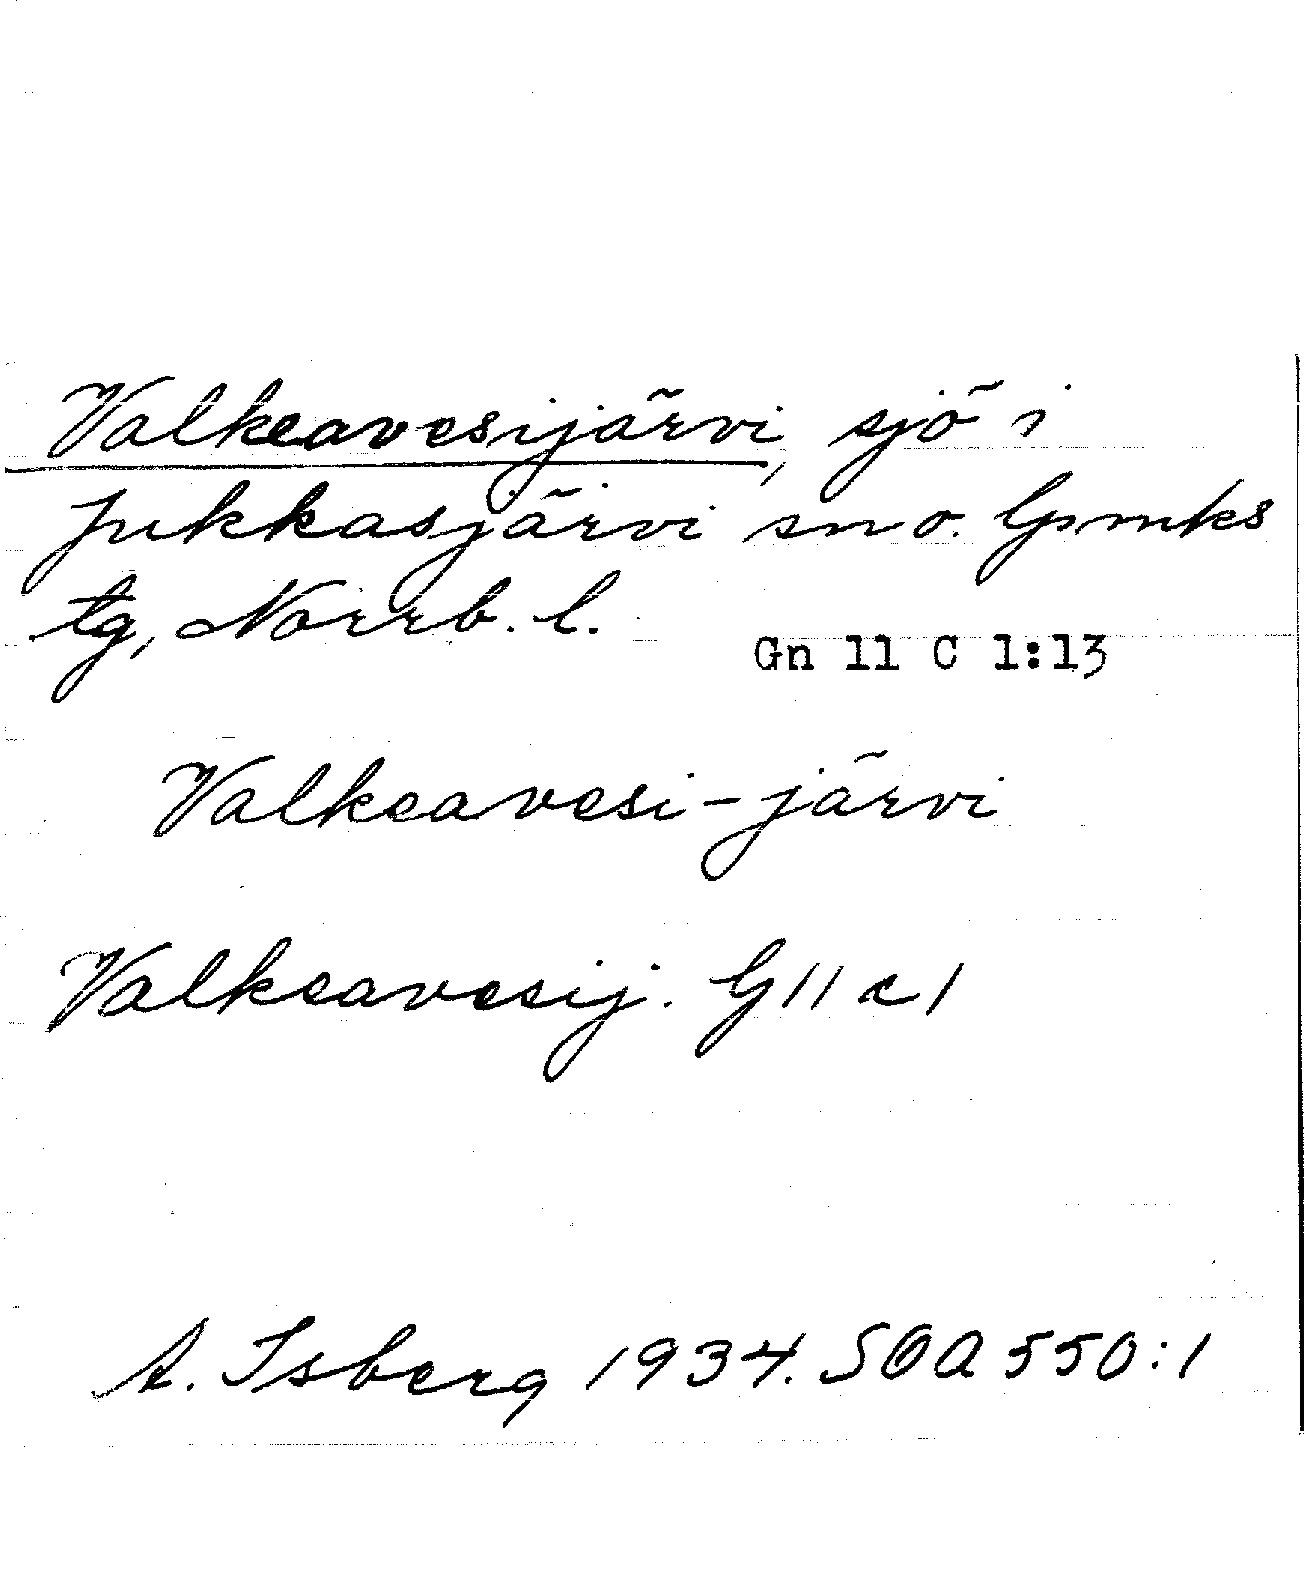 Valkeavesijärvi, sjö i
Jukkasjärvi sn o. Gpmks
tg, Norrb. l.
Gn 11 C 1:13
Valkeavesi-järvi
Valkeavesij. G 11 c 1
A. Isberg 1934. SOA 550:1